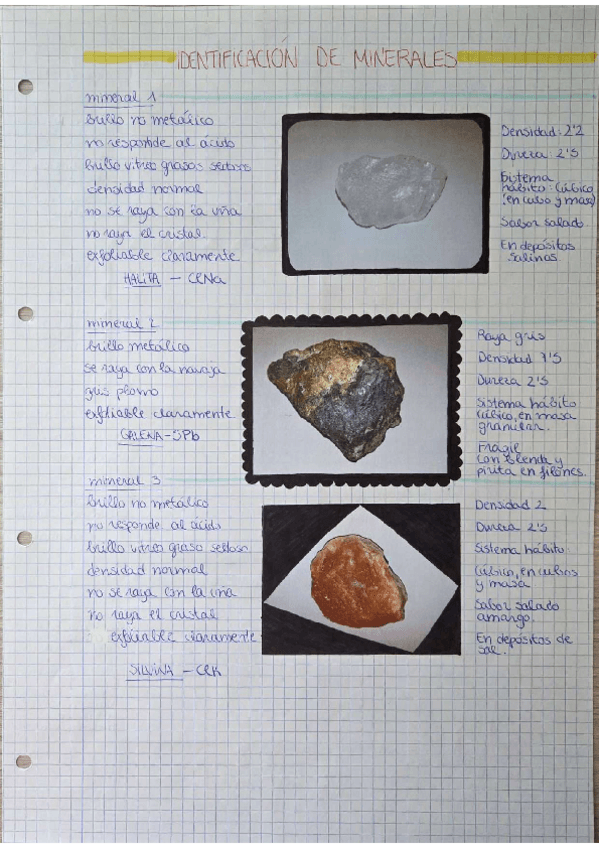 IDENTIFICACIÓN DE MINERALES
mineral 1
brillo no metálico
no responde al ácido
brillo vitreo grasos sedoso
densidad normal
no se raya con la uña
no raya el cristal
exfoliable claramente
HALITA - ClNa
Densidad: 2'2
Dureza: 2'5
Sistema
hábito: cúbico
(en cubo y masa)
Sabor salado
En depósitos
salinos
mineral 2
brillo metálico
se raya con la navaja
gris plomo
exfliable claramente
GALENA-SPb
Raya gris
Densidad 7'5
Dureza 2'5
Sistema hábito
cúbico, en masa
granular.
Frágil
con blenda y
pirita en filones.
mineral 3
brillo no metálico
no responde al ácido
brillo vitreo graso sedoso
densidad normal
no se raya con la uña
no raya el cristal
exfoliable claramente
SILVINA - ClK
Densidad 2
Dureza 2'5
Sistema hábito:
cúbico, en cubos
y masa
Sabor salado
amargo.
En depósitos de
sal.